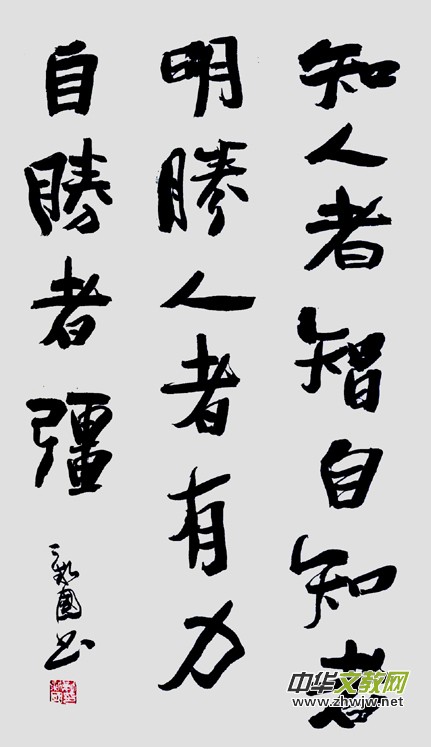 知人者智自知者
明勝人者有力
自勝者彊
中华文教网
www.zhwjw.net